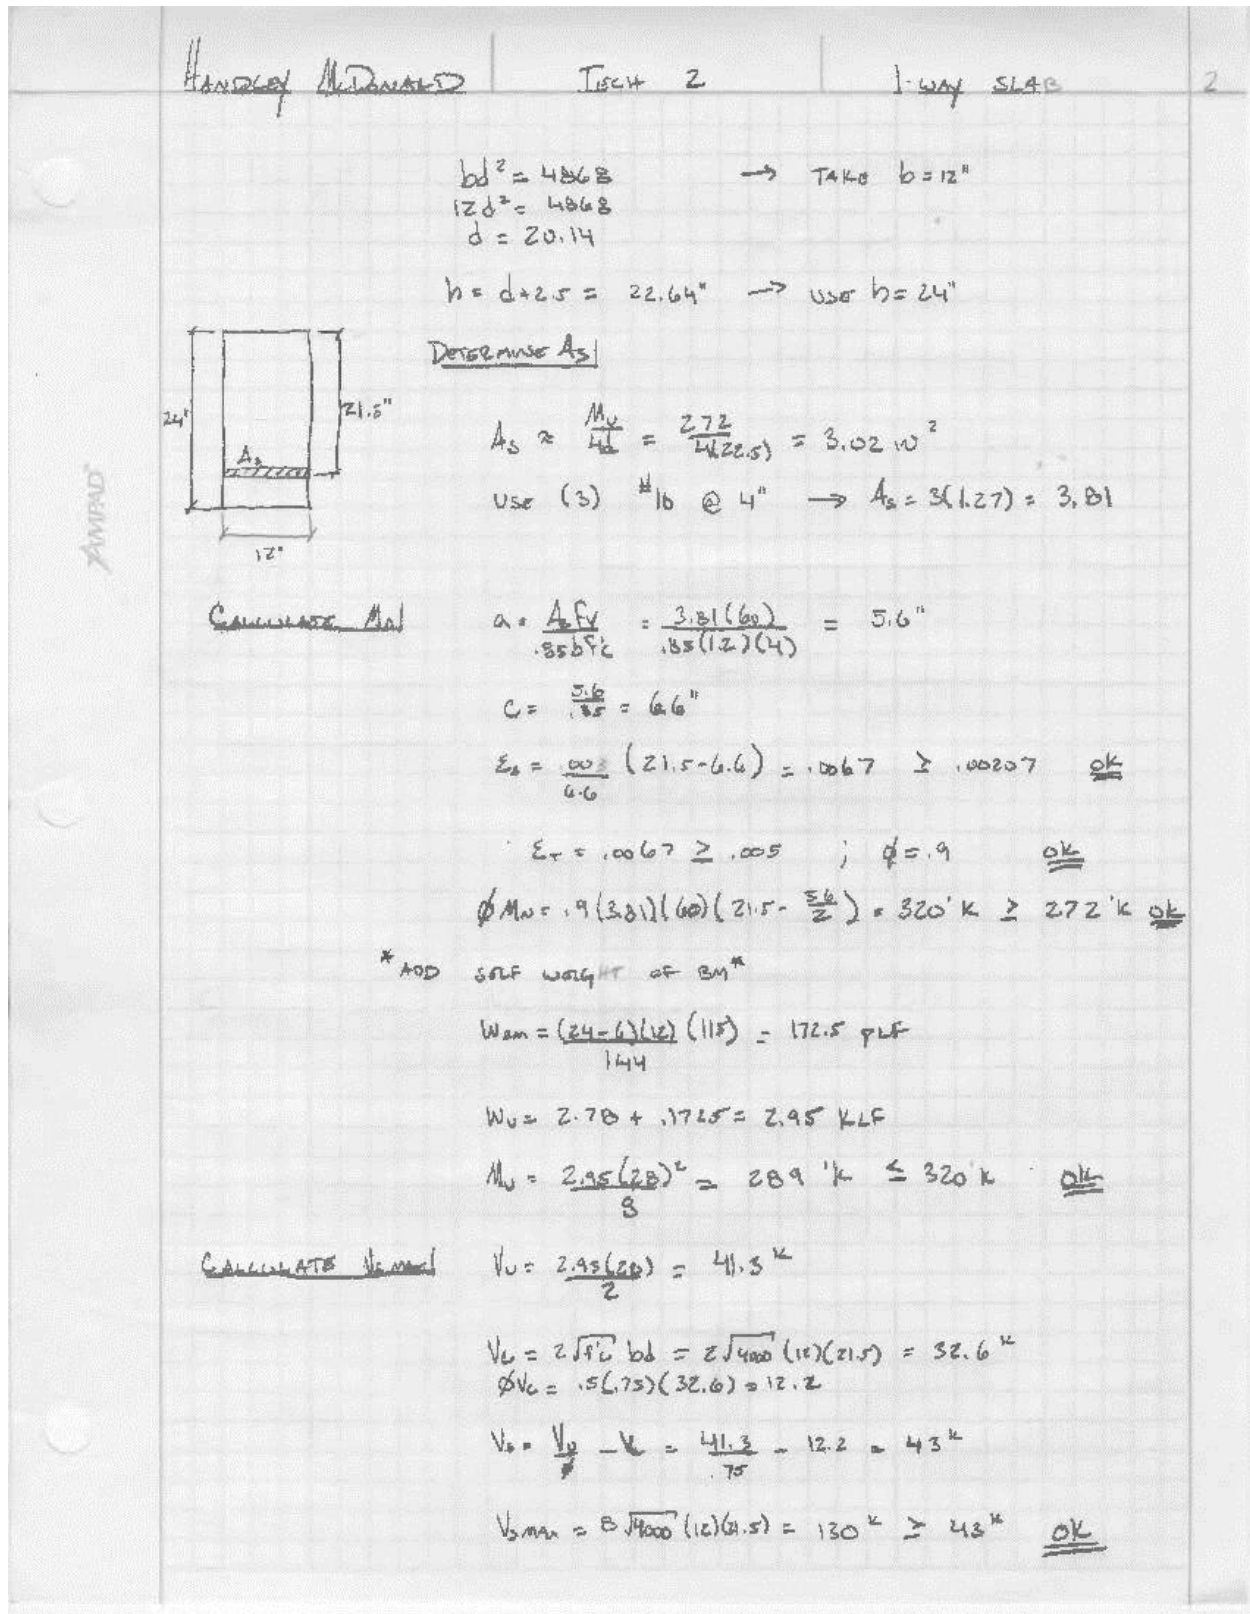 HANDLEY McDONALD TECH 2 1-WAY SLAB 2
bd² = 4868 → TAKE b = 12"
12d² = 4868
d = 20.14
h = d+2.5 = 22.64" → USE h = 24"
DETERMINE As
24" 21.5"
As
12"
As ≈ Mu/4d = 272/4(22.5) = 3.02 IN²
USE (3) #10 @ 4" → As = 3(1.27) = 3.81
CALCULATE Mn
a = Asfy/.85bf'c = 3.81(60)/.85(12)(4) = 5.6"
c = 5.6/.85 = 6.6"
εs = .003/6.6 (21.5-6.6) = .0067 ≥ .00207 OK
εT = .0067 ≥ .005 ; φ = .9 OK
φMn = .9(3.81)(60)(21.5 - 5.6/2) = 320'K ≥ 272'K OK
*ADD SELF WEIGHT OF BM*
WBM = (24-6)(12)/144 (115) = 172.5 PLF
Wu = 2.78 + .1725 = 2.95 KLF
Mu = 2.95(28)²/8 = 289 'K ≤ 320'K OK
CALCULATE Vsmax
Vu = 2.95(28)/2 = 41.3 K
Vc = 2√f'c bd = 2√4000 (12)(21.5) = 32.6 K
φVc = .5(.75)(32.6) = 12.2
Vs = Vu/φ - Vc = 41.3/.75 - 12.2 = 43 K
Vsmax = 8√4000 (12)(21.5) = 130 K ≥ 43 K OK
AMPAD